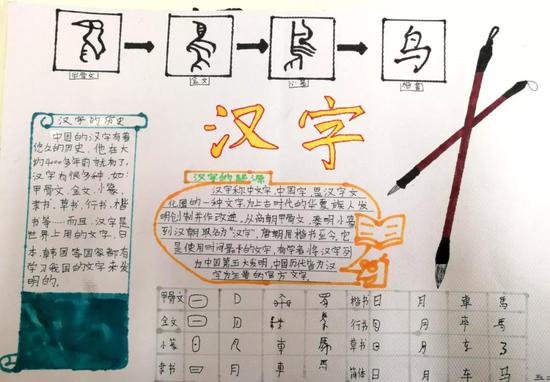 鸟
甲骨文
金文
小篆
楷书
汉字
汉字的历史
中国的汉字有着
悠久的历史，他在大
约4000多年前就有了，
汉字有很多种，如：
甲骨文、金文、小篆、
隶书、草书、行书、楷
书等……而且，汉字是
世界上用的文字，日
本、韩国等国家都有
学习我国的文字来发
明的。
汉字的起源
汉字称中文字、中国字，是汉字文
化圈的一种文字，为上古时代的华夏族人发
明创制并作改进，从商朝甲骨文，秦朝小篆
到汉朝取名为"汉字"，唐朝用楷书至今，它
是使用时间最长的文字，有学者将汉字列
为中国第五大发明，中国历代皆为汉
字为主要的官方文字。
甲骨文 楷书 日 月 車 馬
金文 行书 日 月
小篆 車 草书
隶书 日 月 車 馬 简体 日 月 车 马